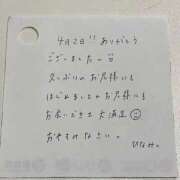 4月2日!! ありがとう
ございました。
久しぶりのお客様にも
はじめましての お客様にも
お会いできて 大満足 ☺
おやすみなさい。
ひなみ。